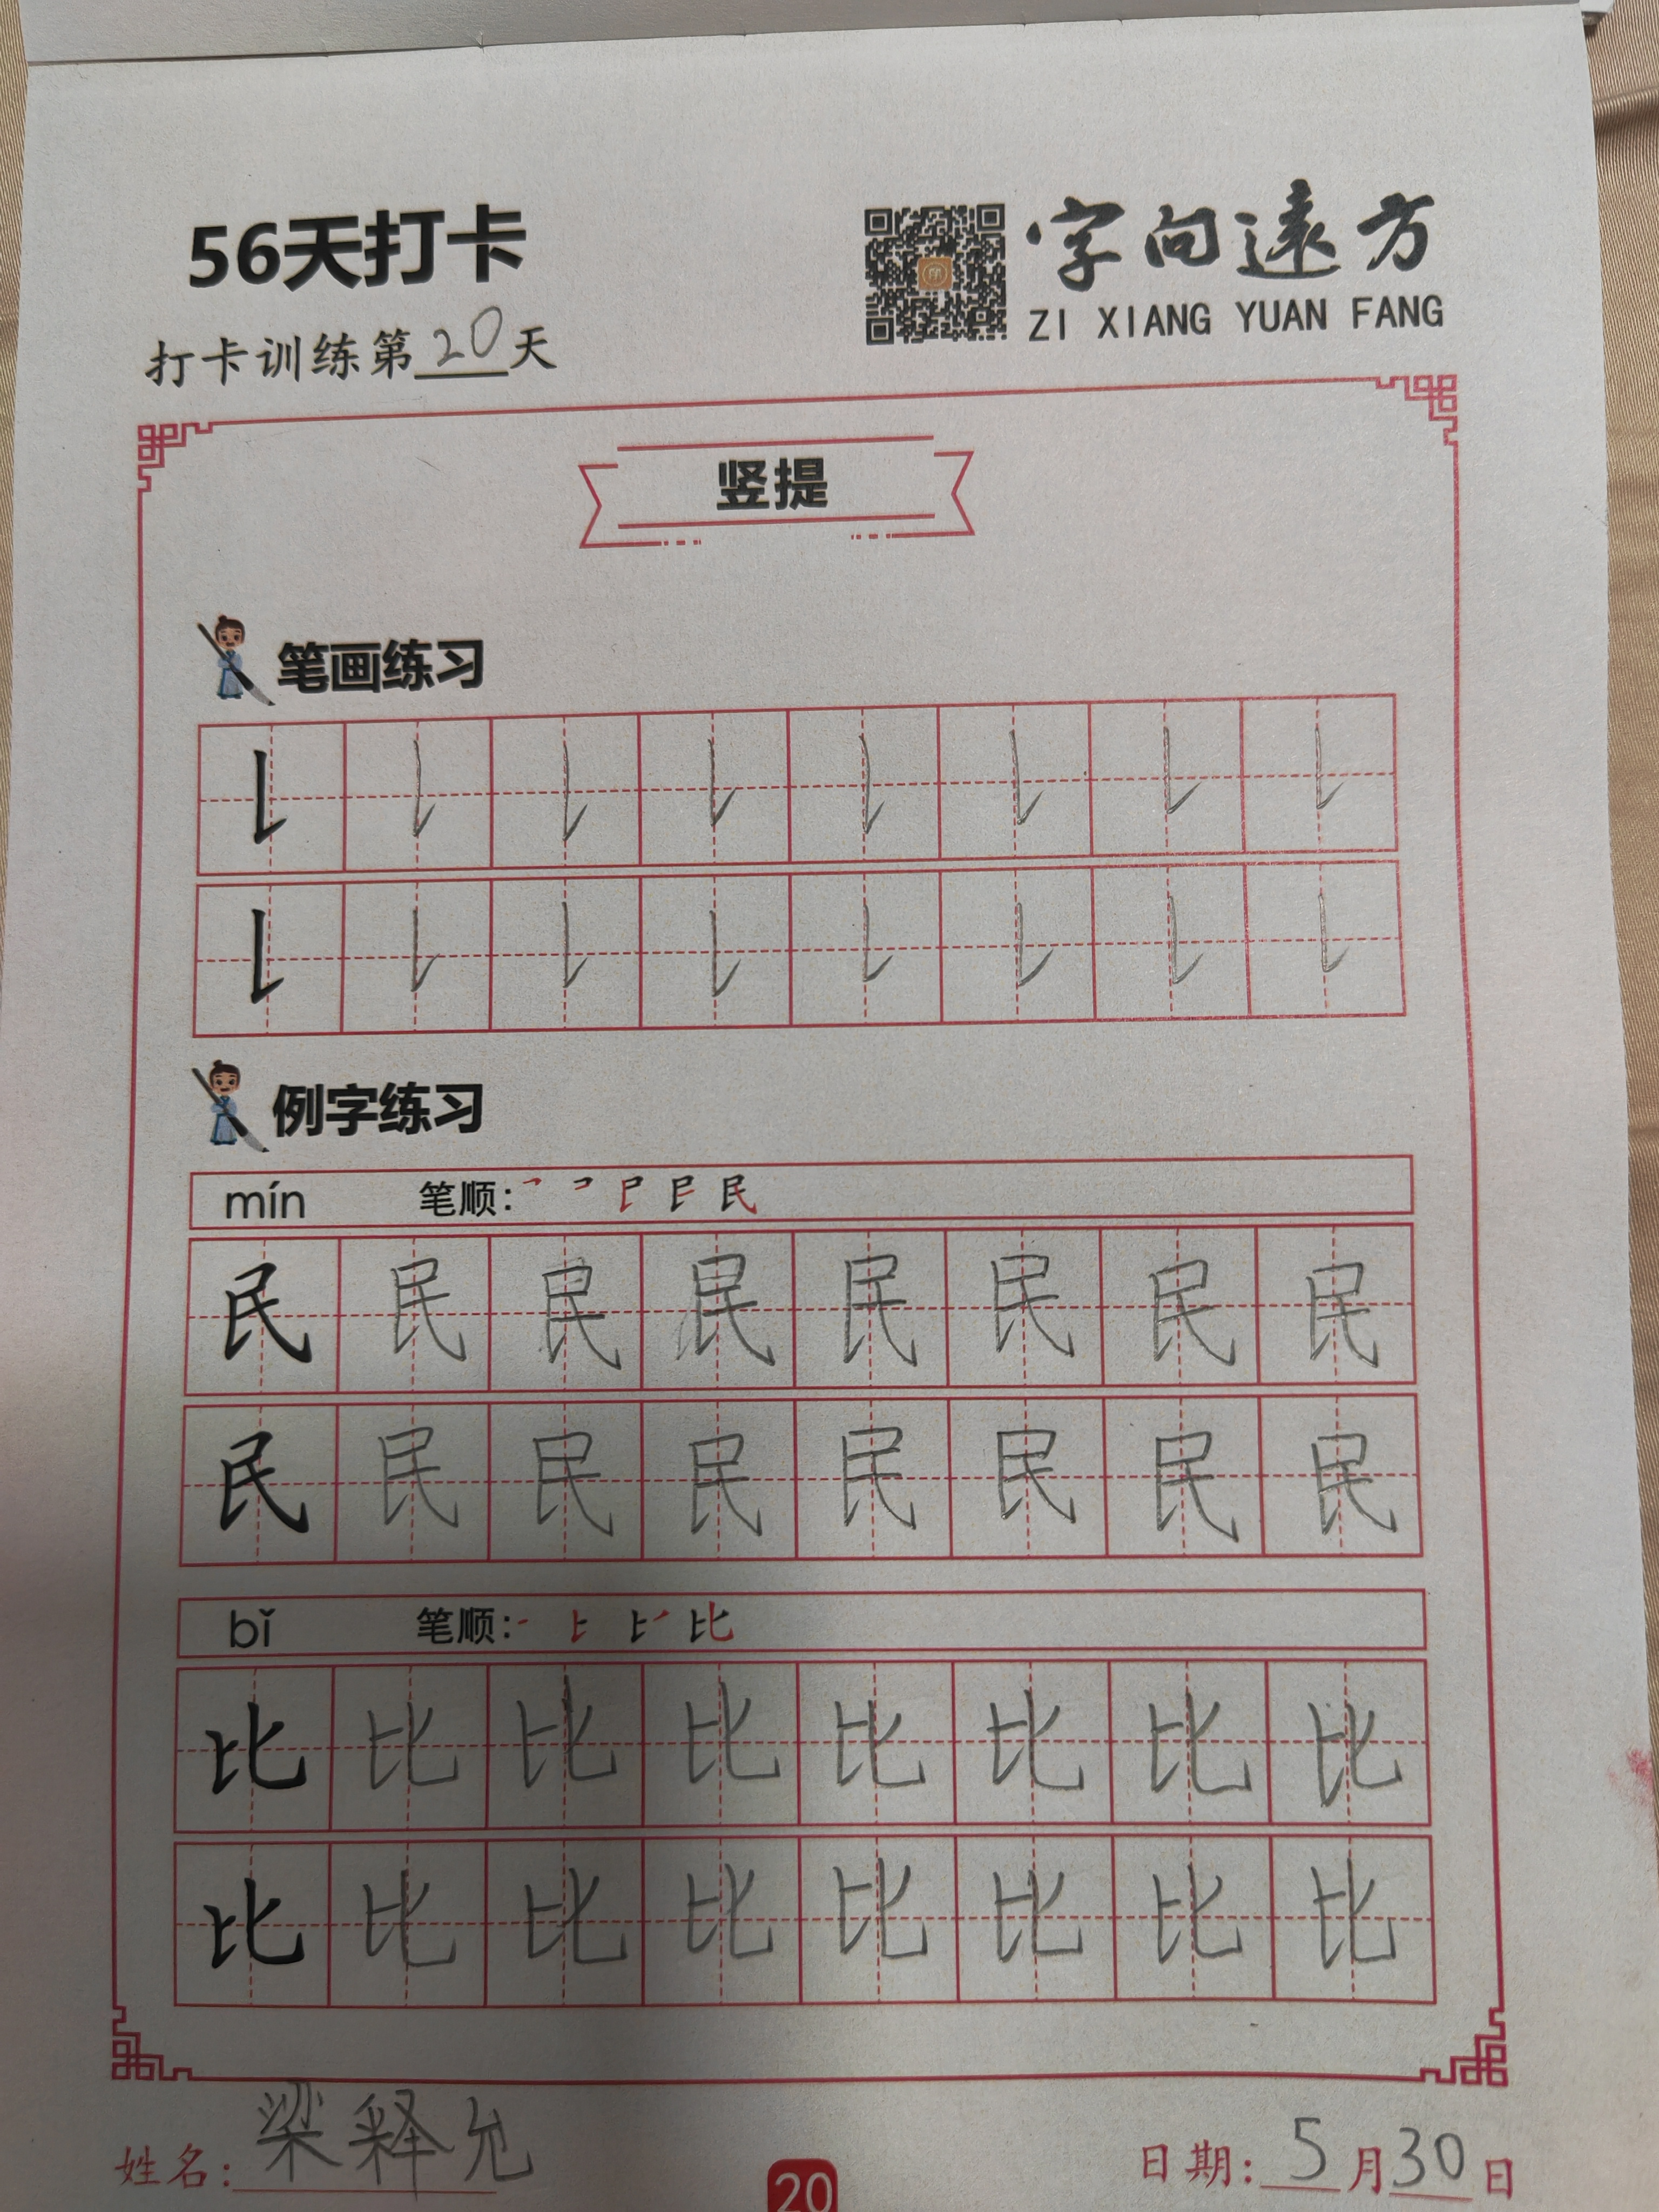 56天打卡
字向遠方
ZI XIANG YUAN FANG
打卡训练第20天
竖提
笔画练习
例字练习
mín 笔顺:
民 民 民 民 民 民 民 民
民 民 民 民 民 民 民 民
bǐ 笔顺:
比 比 比 比 比 比 比 比
比 比 比 比 比 比 比 比
姓名: 梁释允
20
日期: 5月30日